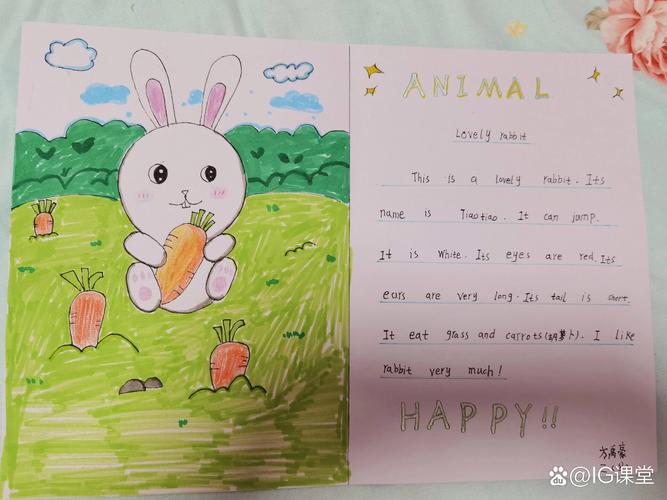 ANIMAL
Lovely rabbit
This is a lovely rabbit. Its
name is Tiaotiao. It can jump.
It is white. Its eyes are red. Its
ears are very long. Its tail is short.
It eat grass and carrots(胡萝卜). I like
rabbit very much!
HAPPY!!
@IG课堂